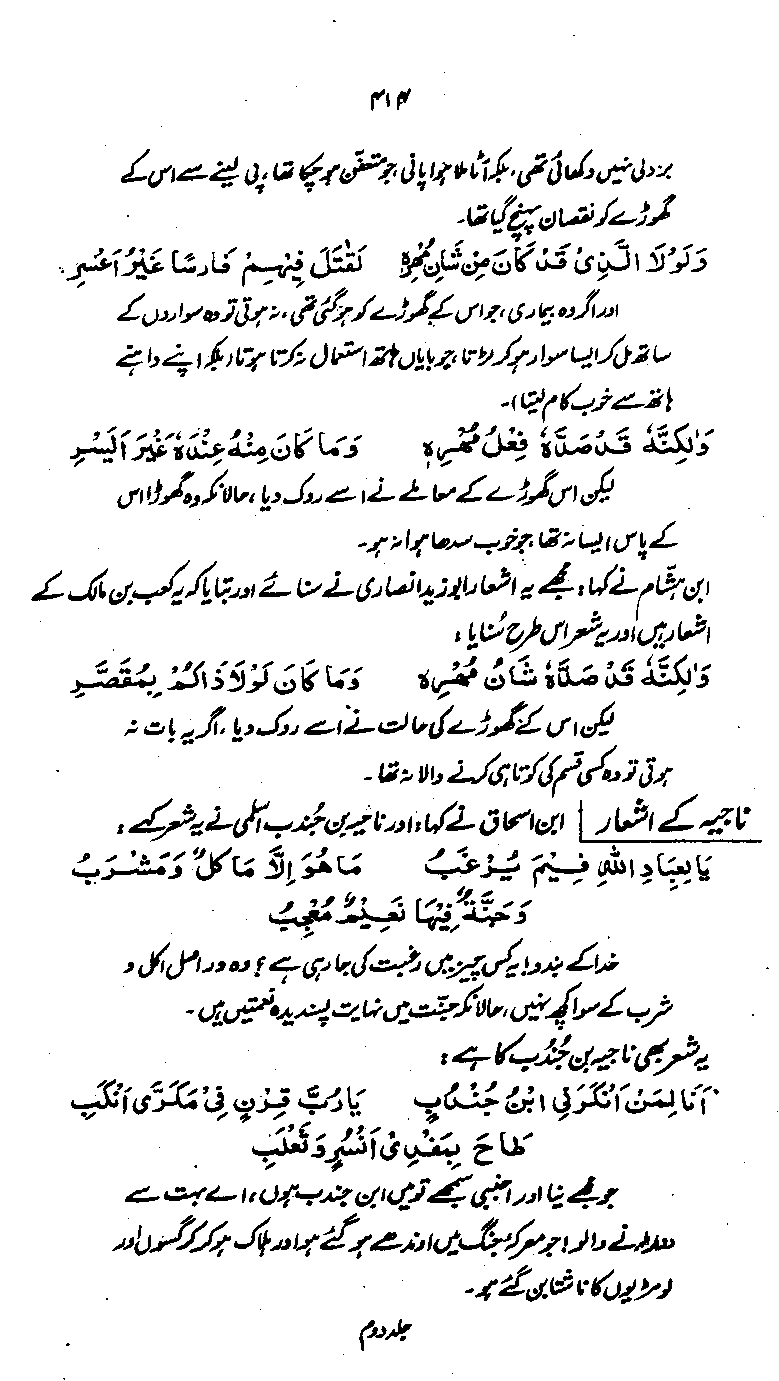 ۴۱۴
بزدلی نہیں دکھائی تھی، بلکہ آٹا ملا ہوا پانی، جو متعفن ہو چکا تھا، پی لینے سے اس کے
گھوڑے کو نقصان پہنچ گیا تھا۔
وَلَوْلَا الَّذِیْ قَدْ کَانَ مِنْ شَانِ مُهْرِهٖ لَقَتَلَ فِیْهِمْ فَارِسًا غَیْرُ اَعْسَرِ
اور اگر وہ بیماری، جو اس کے گھوڑے کو ہو گئی تھی، نہ ہوتی تو وہ سواروں کے
ساتھ مل کر ایسا سوار ہو کر لڑتا، جو بایاں ہاتھ استعمال نہ کرتا ہوتا، بلکہ اپنے داہنے
ہاتھ سے خوب کام لیتا)۔
وَلٰکِنَّهٗ قَدْ صَدَّهٗ فِعْلُ مُهْرِهٖ وَمَا کَانَ مِنْهُ عِنْدَهٗ غَیْرَ اَلْیَسْرِ
لیکن اس گھوڑے کے معاملے نے اسے روک دیا، حالانکہ وہ گھوڑا اس
کے پاس ایسا نہ تھا، جو خوب سدھا ہوا نہ ہو۔
ابن ہشام نے کہا: مجھے یہ اشعار ابو زید انصاری نے سنائے اور بتایا کہ یہ کعب بن مالک کے
اشعار ہیں اور یہ شعر اس طرح سُنایا:
وَلٰکِنَّهٗ قَدْ صَدَّهٗ شَانُ مُهْرِهٖ وَمَا کَانَ لَوْلَا ذَاکُمْ بِمُقَصِّرِ
لیکن اس کے گھوڑے کی حالت نے اسے روک دیا، اگر یہ بات نہ
ہوتی تو وہ کسی قسم کی کوتاہی کرنے والا نہ تھا۔
ناجیہ کے اشعار ابن اسحاق نے کہا: اور ناجیہ بن جُندب اسلمی نے یہ شعر کہے:
یَا لِعِبَادِ اللّٰهِ فِیْمَ یُرْغَبُ مَا هُوَ اِلَّا مَا کَلٌ وَمَشْرَبُ
وَجَنَّةٌ فِیْهَا نَعِیْمٌ مُعْجِبُ
خدا کے بندو! یہ کس چیز میں رغبت کی جا رہی ہے؟ وہ دراصل اکل و
شرب کے سوا کچھ نہیں، حالانکہ جنّت میں نہایت پسندیدہ نعمتیں ہیں۔
یہ شعر بھی ناجیہ بن جُندُب کا ہے:
اَنَا لِمَنْ اَنْکَرَنِی ابْنُ جُنْدُبٍ یَا رُبَّ قِرْنٍ فِیْ مَکَرِّی اَنْکَبِ
طَاحَ بِمَغْدِیْ اَنْسُرٍ وَثَعْلَبِ
جو مجھے نیا اور اجنبی سمجھے تو میں ابن جندب ہوں، اے بہت سے
نے والو! جو معرکۂ جنگ میں اوندھے ہو گئے ہو اور ہلاک ہو کر کرگسوں اور
لومڑیوں کا ناشتا بن گئے ہو۔
جلد دوم